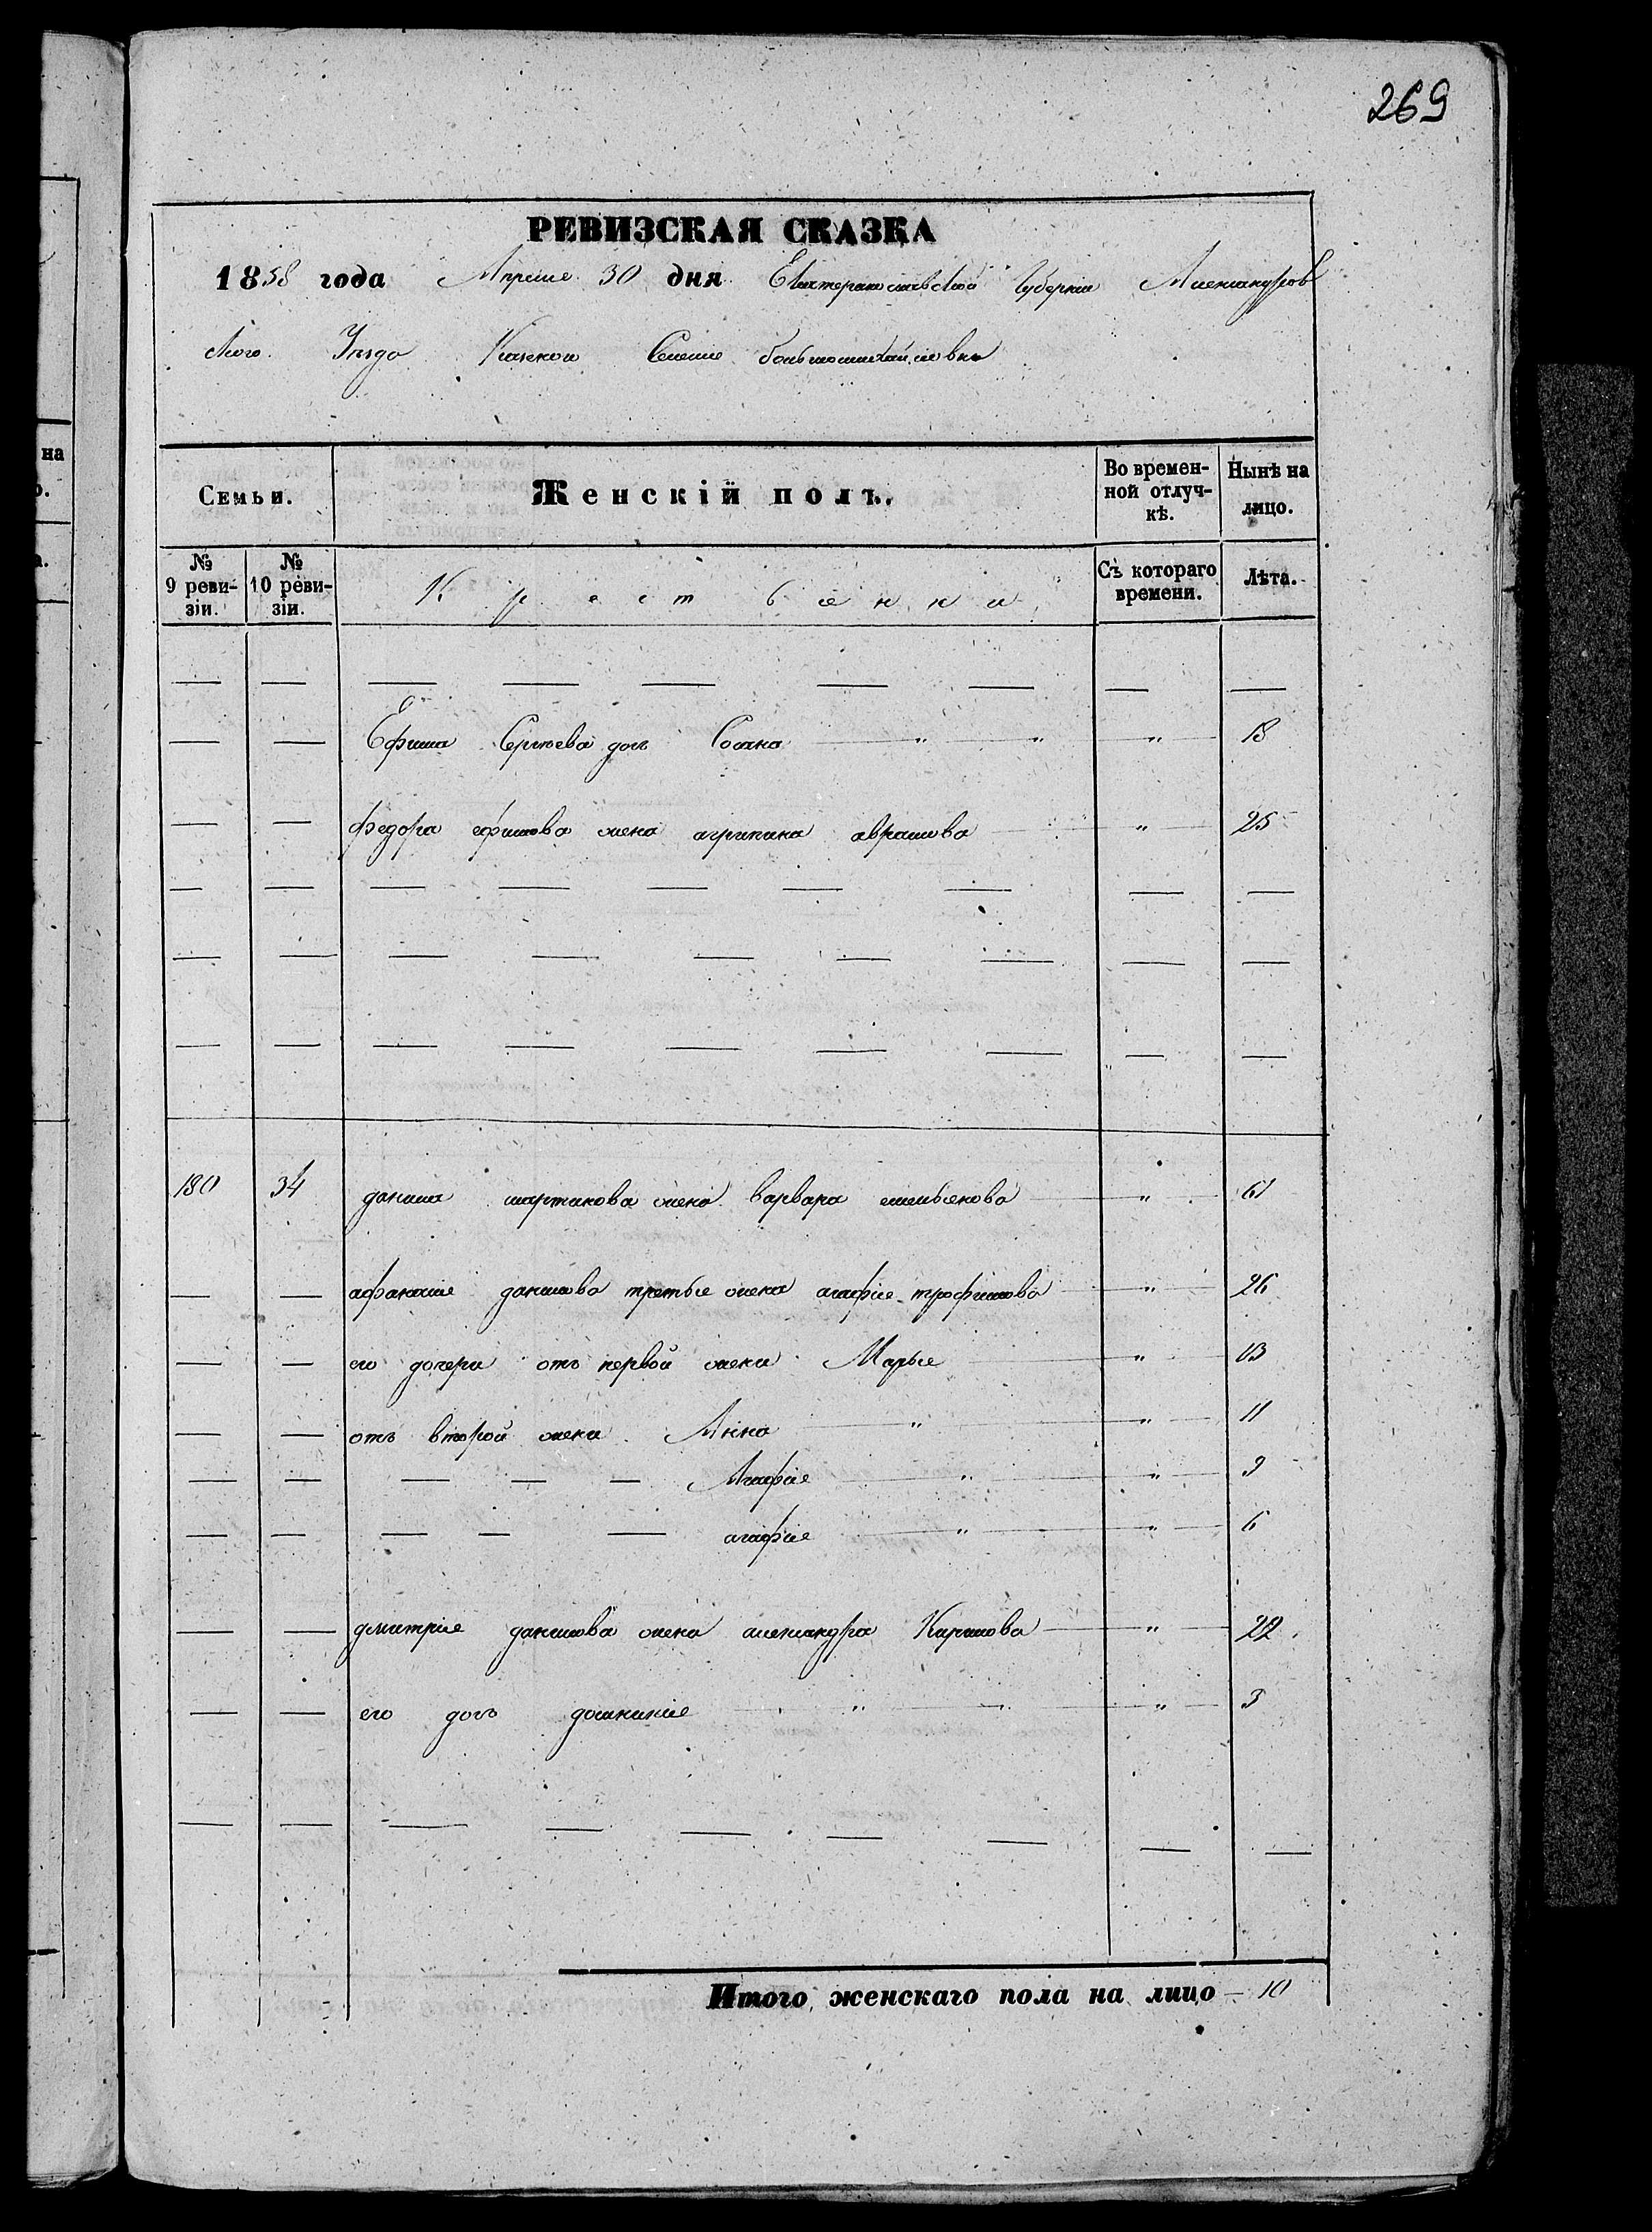 269
РЕВИЗСКАЯ СКАЗКА
1858 года Апреля 30 дня Екатеринославской Губернии Александров
ского Уезда Селение большомихайловка
на
Семьи.
Женскій полъ.
Во времен-
ной отлуч-
кѣ.
Нынѣ на
лицо.
№
9 реви-
зіи.
№
10 реви-
зіи.
К р е с т ь я н к и
Съ котораго
времени.
Лѣта.
— — — — — — — — —
— — Ефима Сергѣева дочь " " " 18
— — федора ефимова жена агрипина аврамова " 25
— — — — — — — — —
— — — — — — — — —
— — — — — — — — —
180 34 данила мартинова жена варвара емельянова " 61
— — афанасия данилова третья жена агафия трофимова " 26
— — его дочери отъ первой жени Марья " 13
— — отъ второй жени Анна " " 11
— — — — — Агафия " " 9
— — — — — агафия " " 6
— — дмитрия данилова жена александра Кирилова " 22
— — его дочь домникия " " " 3
— — — — — — — — —
Итого женскаго пола на лицо — 10